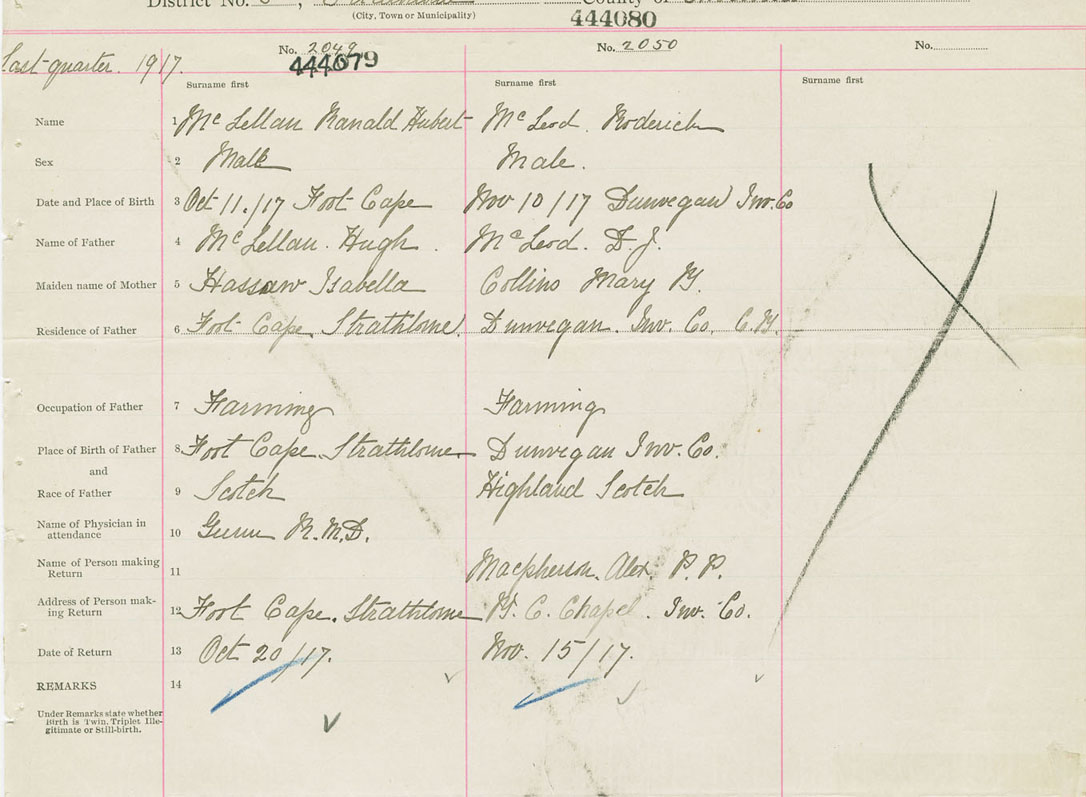 District No. County of
(City, Town or Municipality)
444080
No. 2049 No. 2050 No.
444079
Last quarter. 1917.
Surname first Surname first Surname first
Name 1 Mc Lellan Ranald Hubert Mc Leod. Roderick
Sex 2 Male Male.
Date and Place of Birth 3 Oct 11./17 Foot Cape Nov 10/17 Dunvegan Inv. Co
Name of Father 4 Mc Lellan. Hugh. Mc Leod. D. J.
Maiden name of Mother 5 Isabella Collins Mary
Residence of Father 6 Foot Cape Strathlorne. Dunvegan. Inv. Co. C.B.
Occupation of Father 7 Farming Farming
Place of Birth of Father 8 Foot Cape. Strathlorne Dunvegan Inv. Co.
and
Race of Father 9 Scotch Highland Scotch
Name of Physician in
attendance 10 Gunn M.D.
Name of Person making
Return 11 Macpherson. Alex. P. P.
Address of Person mak-
ing Return 12 Foot Cape. Strathlorne C. Chapel. Inv. Co.
Date of Return 13 Oct 20/17. Nov. 15/17.
REMARKS 14
Under Remarks state whether
Birth is Twin, Triplet, Ille-
gitimate or Still-birth.